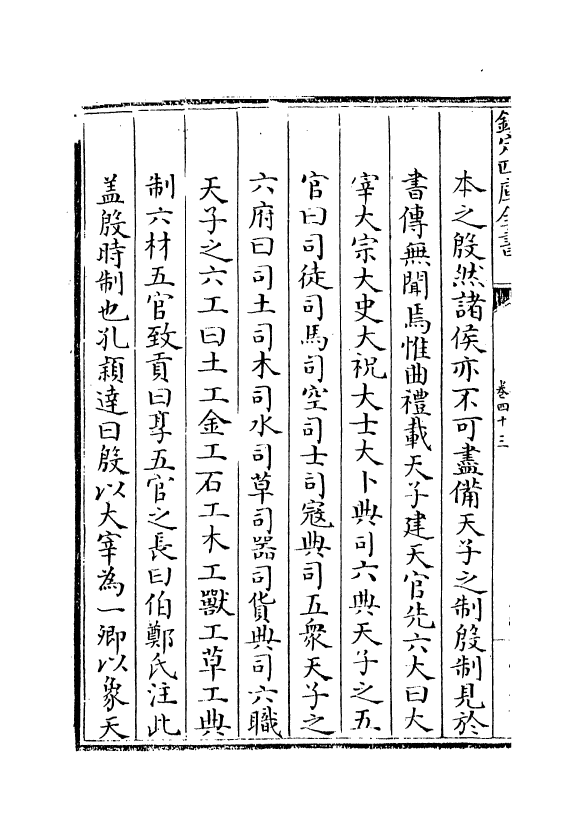 欽定四庫全書
卷四十三
本之殷然諸侯亦不可盡備天子之制殷制見於
書傳無聞焉惟曲禮載天子建天官先六大曰大
宰大宗大史大祝大士大卜典司六典天子之五
官曰司徒司馬司空司士司寇典司五衆天子之
六府曰司土司木司水司草司器司貨典司六職
天子之六工曰土工金工石工木工獸工草工典
制六材五官致貢曰享五官之長曰伯鄭氏注此
盖殷時制也孔穎達曰殷以大宰為一卿以象天